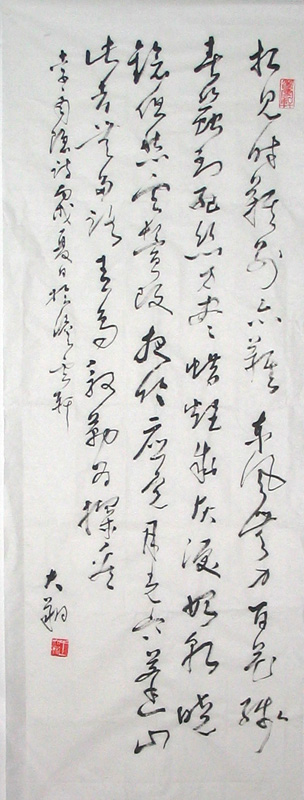 相见时难别亦难东风无力百花残
春蚕到死丝方尽蜡炬成灰泪始乾晓
镜但愁云鬓改夜吟应觉月光寒蓬山
此去无多路青鸟殷勤为探看
李商隐诗 戌夏日於 云轩
大翔